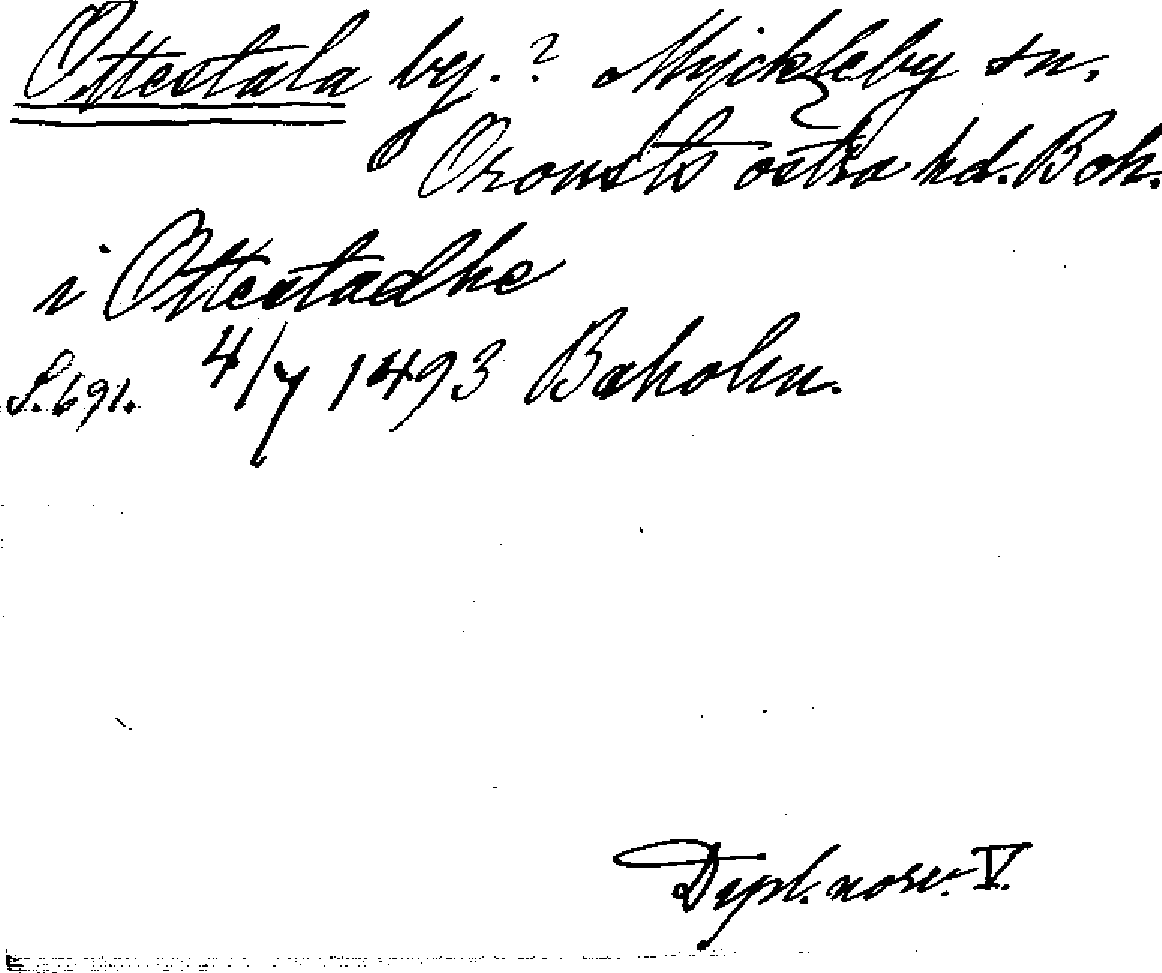 Ottestala by. ? Myckleby sn.
Orousts östra hd. Boh.
i Ottestadhe
S. 691. 4/7 1493 Baholm.
Dipl. norv. V.